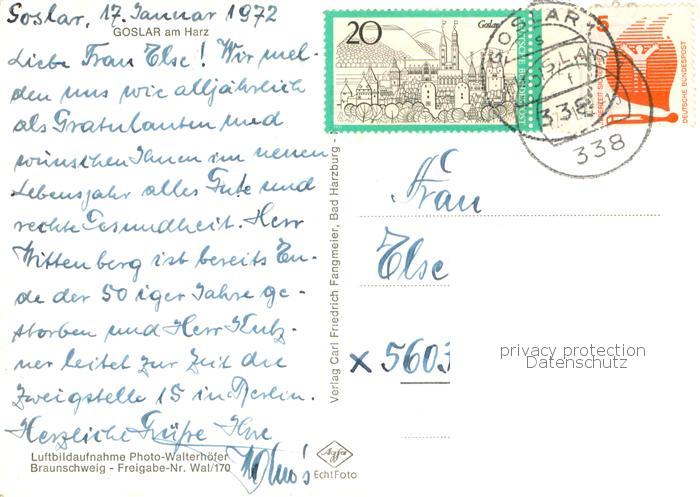 Goslar, 17. Januar 1972
GOSLAR am Harz
Liebe Frau Else! Wir mel-
den uns wie alljährlich
als Gratulanten und
wünschen Ihnen im neuen
Lebensjahr alles Gute und
rechte Gesundheit. Herr
Wittenberg ist bereits En-
de der 50 iger Jahre ge-
storben und Herr Kutz-
ner leitet zur Zeit die
Zweigstelle 15 in Berlin.
Herzliche Grüße Ihre
Luftbildaufnahme Photo-Walterhöfer
Braunschweig - Freigabe-Nr. Wal/170
Agfa
EchtFoto
Verlag Carl Friedrich Fangmeier, Bad Harzburg -
20
Goslar
DEUTSCHE BUNDESPOST
GOSLAR
338
5
DEUTSCHE BUNDESPOST
GOSLAR
338
Frau
Else
x 5603
privacy protection
Datenschutz